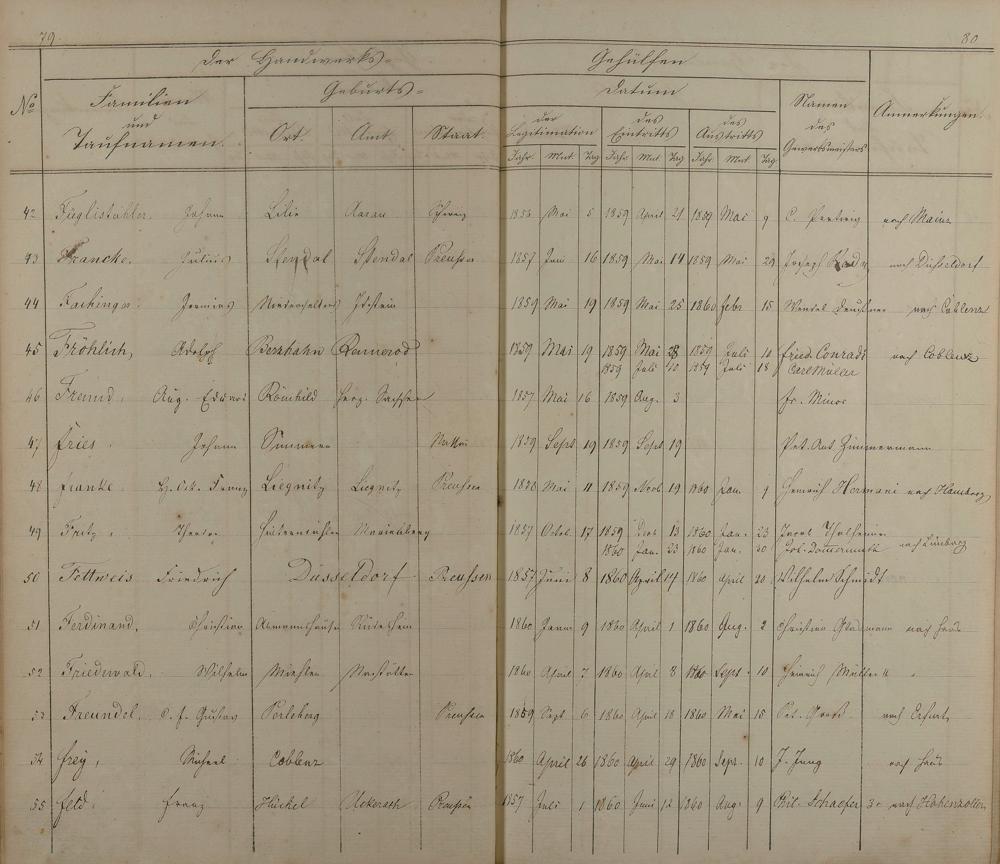 79. 80
Der Handwerks= Gehülfen
No Familien und Taufnamen. Geburts= Datum Namen des Gewerbsmeisters Anmerkungen.
Ort. Amt. Staat. der Legitimation des Eintritts des Austritts
Jahr Mnt. Tag Jahr Mnt. Tag Jahr Mnt Tag
42 Füglistahler. Johann Aarau Schweiz Mai 5 1859 April 21 1859 Mai 9 C. nach Mainz
43 Francke. Julius Stendal Stendal Preußen 1857 Juni 16 1859 Mai 14 1859 Mai 29 Joseph nach Düsseldorf
44 Fachinger Jeremias Niederselters Idstein 1859 Mai 19 1859 Mai 25 1860 febr 15 Wendel nach Coblenz
45 Fröhlich, Adolph Berzhahn Rennerod 1859 Mai 19 1859 Mai 28 1859 Juli 10 fried. Conradi nach Coblenz
1859 Juli 10 1859 Juli 18 Carl Müller
46 Freund. Aug. Eduard Römhild Herz. Sachsen 1857 Mai 16 1859 Aug. 3 fr. Minor
47 fries. Johann Simmern Nassau 1859 Sept 19 1859 Sept 19 Pet. Ant. Zimmermann
48 franke. Franz Liegnitz Liegnitz Preußen Mai 11 1859 Novb 19 1860 Jan. 1 Heinrich Hermani nach Hamburg
49 Fritz. Theodor Marienberg 1857 Octob. 17 1859 13 1860 Jan. 23 Jacob Thalheimer
1860 Jan. 23 1860 Jan. 30 Jos. Dommermuth nach Limburg
50 Fettweis Friedrich Düsseldorf Preussen 1857 Juni 8 1860 April 14 1860 April 20 Wilhelm Schmidt
51 Ferdinand, Christian Assmannshausen Rüdesheim 1860 9 1860 April 1 1860 Aug. 2 Christian nach Haus
52 Friedwald. Wilhelm Miehlen Nastätten 1860 April 7 1860 April 8 1860 Sept. 10 Heinrich Müller "
53 Freundel. Gustav Perleberg Preußen 1859 Sept 6 1860 April 18 1860 Mai 15 Pet. nach Erfurt
54 frey, Michael Coblenz 1860 April 26 1860 April 29 1860 Sept. 10 J. Jung nach Haus
55 feld. franz Hückel Uckerath Preußen 1857 Juli 1 1860 Juni 12 1860 Aug. 9 Phil. Schaefer nach Hohenzollern